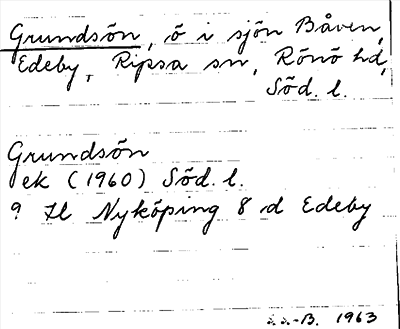 Grundsön, ö i sjön Båven,
Edeby, Ripsa sn, Rönö hd,
Söd. l.
Grundsön
ek (1960) Söd. l.
9 H Nyköping 8 d Edeby
S.S.-B. 1963